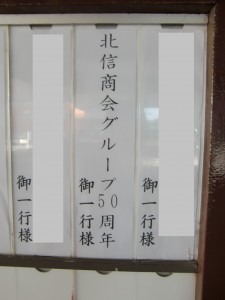 御一行様
北信商会グループ50周年
御一行様
御一行様